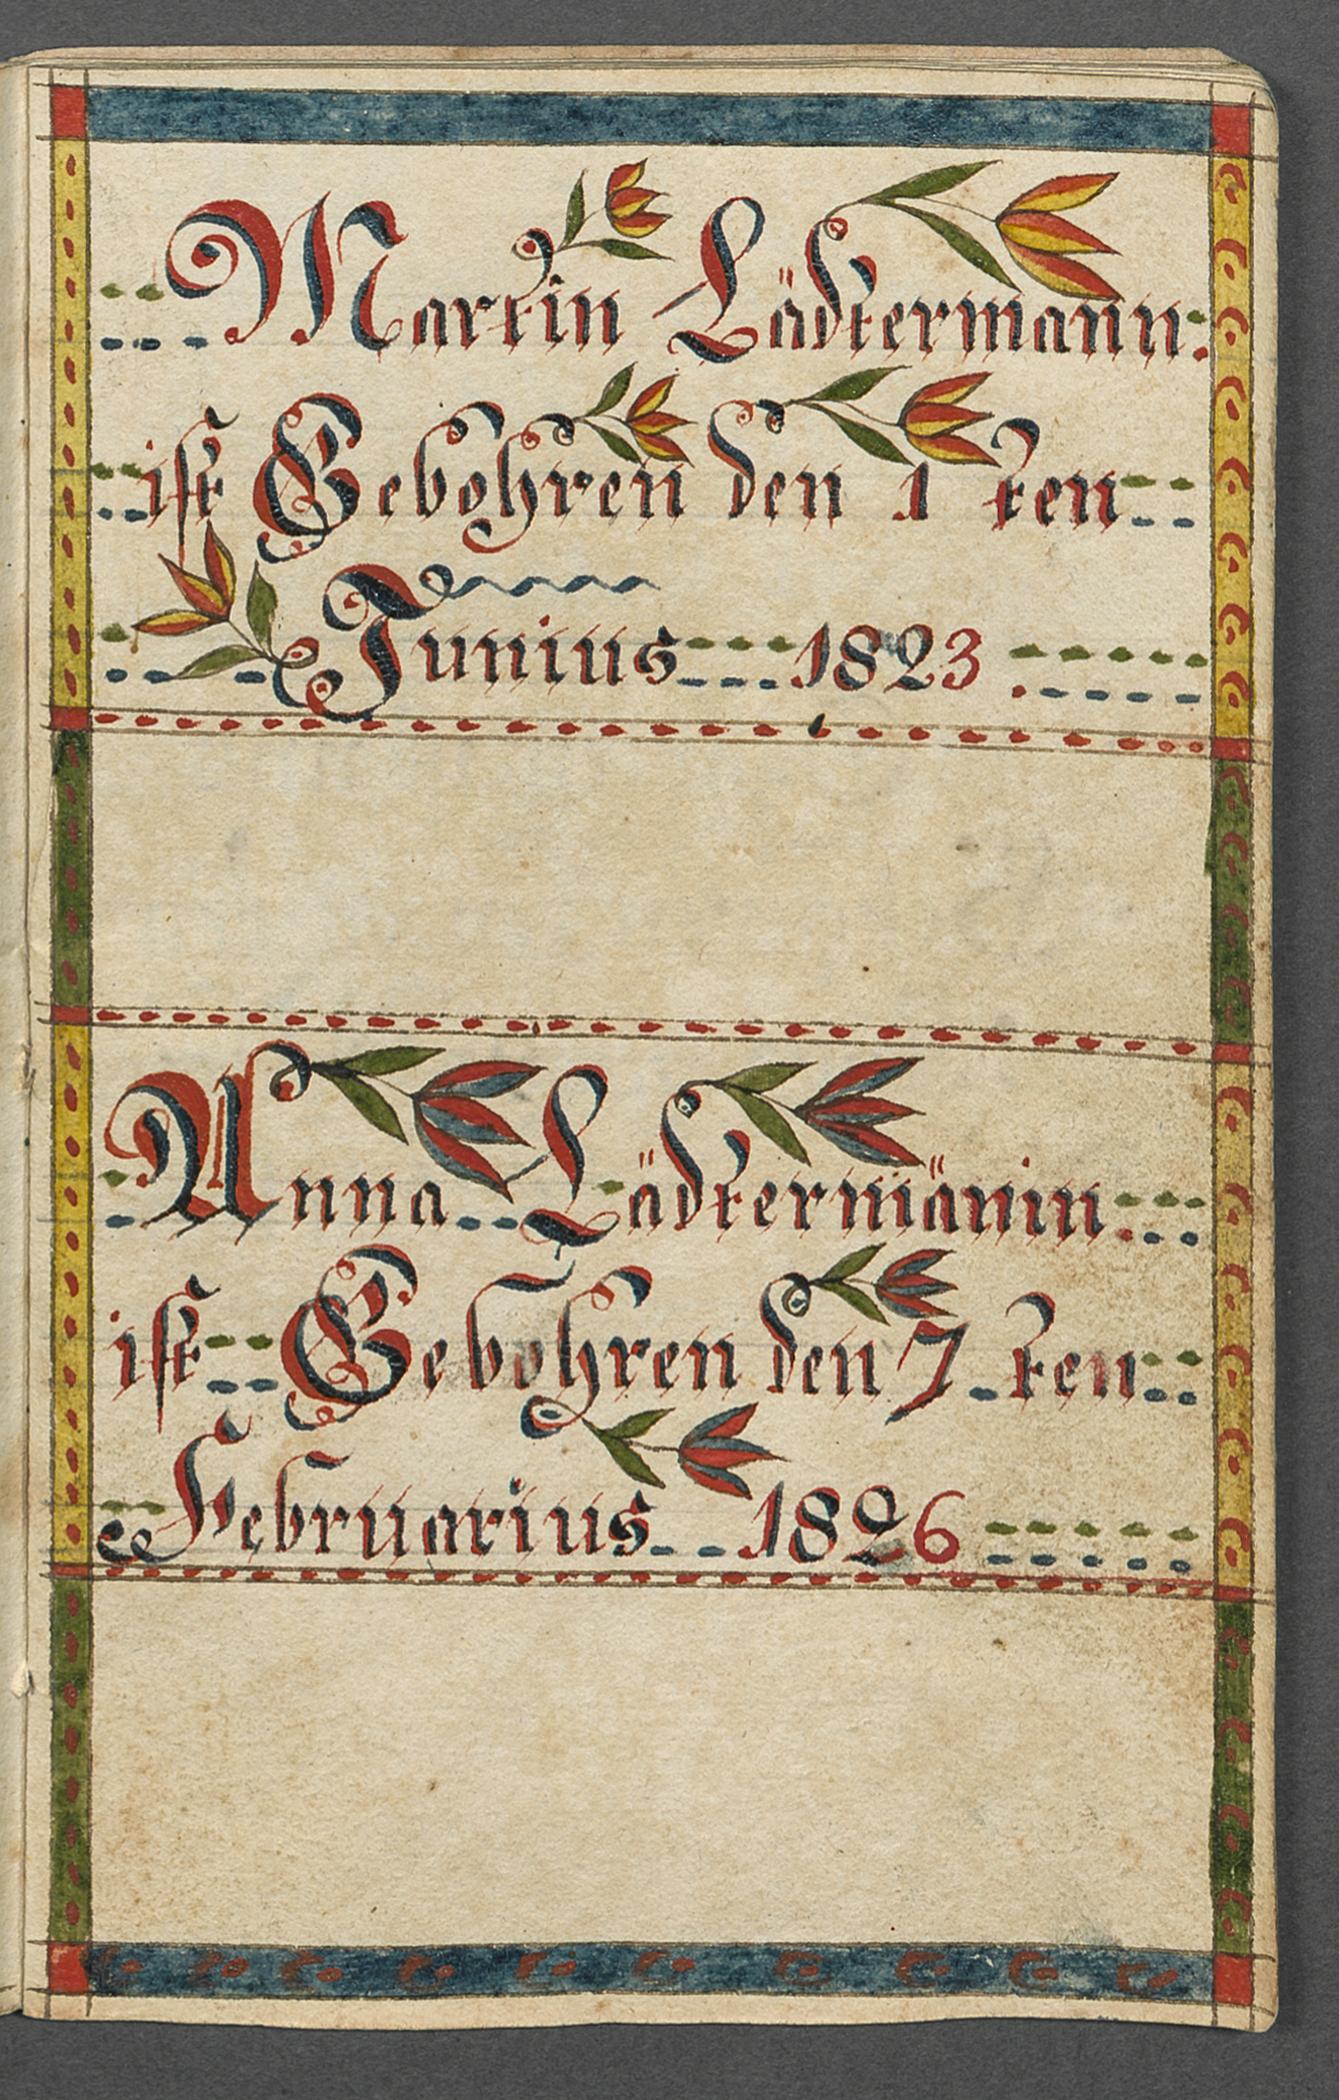 Martin Lädtermann:
ist Gebohren den 1 ten
Junius 1823
Anna Lädtermänin
ist Gebohren den 7 ten
Februarius 1826